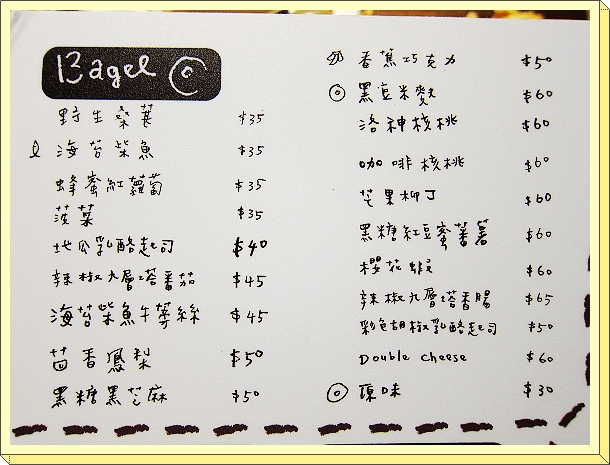 Bagel
野生桑葚 $35
海苔柴魚 $35
蜂蜜紅蘿蔔 $35
菠菜 $35
地瓜乳酪起司 $40
辣椒九層塔番茄 $45
海苔柴魚牛蒡絲 $45
茴香鳳梨 $50
黑糖黑芝麻 $50
香蕉巧克力 $50
黑豆米麩 $60
洛神核桃 $60
咖啡核桃 $60
芒果柳丁 $60
黑糖紅豆蜜蕃薯 $60
櫻花蝦 $60
辣椒九層塔香腸 $65
彩色胡椒乳酪起司 $50
Double cheese $60
原味 $30